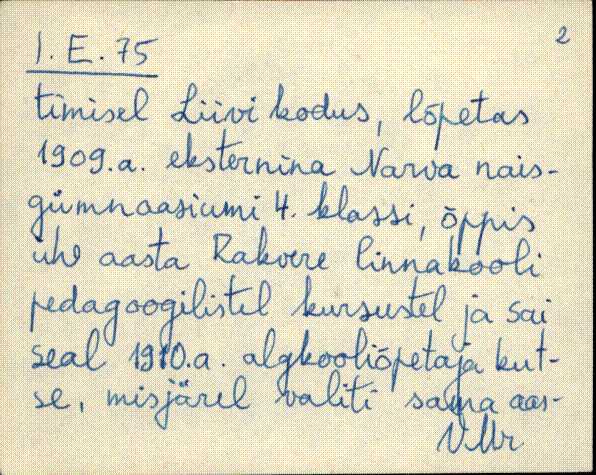 I. E. 75
2
timisel Liivi kodus, lõpetas
1909.a. eksternina Narva nais-
gümnaasiumi 4. klassi, õppis
ühe aasta Rakvere linnakooli
pedagoogilistel kursustel ja sai
seal 1910.a. algkooliõpetaja kut-
se, misjärel valiti sama aas-